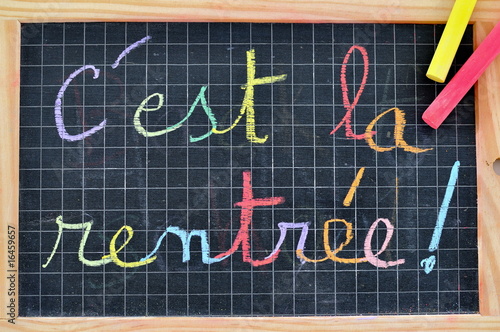 C'est la
rentrée!
#16459657